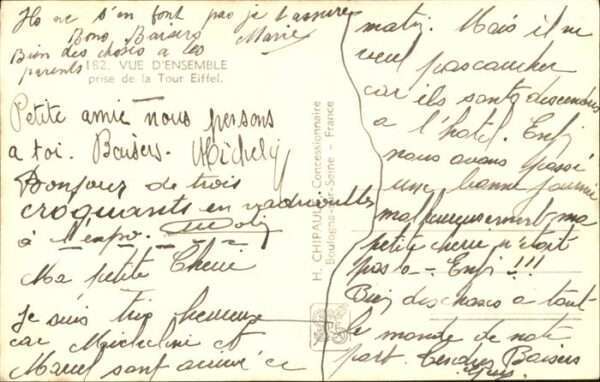 Ils ne s'en font pas je t'assure
Bons Baisers Marie
Bien des choses a les
parents
182. VUE D'ENSEMBLE
prise de la Tour Eiffel.
Petite amie nous pensons
a toi. Baisers. Michely
Bonjour de trois
croquants en vadrouilles
à l'expo.
Ma petite Cherie
Je suis très heureux
car Micheline et
Marcel sont arrivé ce
H. CHIPAULT, Concessionnaire
Boulogne-sur-Seine - France
matin. Mais il ne
veul pas coucher
car ils sont descendus
a l'hotel. Enfin
nous avons passé
une bonne journée
malheureusement ma
petite cherie n'etait
pas - Enfin !!!
Bien des choses a tout
le monde de notre
part. Tendres Baisers